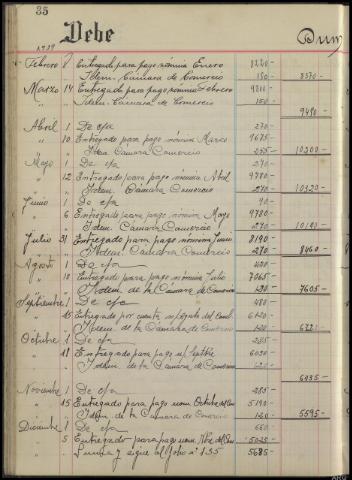 35
Debe
1939
Febrero 8 Entregado para pago nómina Enero 8220-
" Idem. Cámara de Comercio 150- 8370-
Marzo 14 Entregado para pago nómina Febrero
" Idem. Camara de Comercio 150-
9490-
Abril 1 De c/a 270-
" 10 Entregado para pago nómina Marzo 9675-
" Idem Cámara Comercio 255- 10200-
Mayo 1 De c/a 270-
" 12 Entregado para pago nómina Abril 9780-
" Idem. Cámara Comercio 270- 10320-
Junio 1 De c/a 90-
" 6 Entregado para pago nómina Mayo 9780-
" Idem Camara Comercio 270-
Julio 31 Entregado para pago nómina Junio 8190-
" Idem. Camara Comercio 270- 8460-
Agosto 1 De c/a
" 10 Entregado para pago nómina Julio 7065-
" Idem. de la Cámara de Comercio 120- 7605-
Septiembre 1 De c/a 480-
" Entregado por cuenta 6120-
" Idem. de la Cámara de Comercio 120-
Octubre 1 De c/a 285-
" 11 Entregado para pago 6030-
" Idem. de la Camara de Comercio
6435-
Noviembre 1 De c/a 285-
" 15 Entregado para pago nom. Octubre 5190-
" Idem. de la Camara de Comercio 120- 5595-
Diciembre 1 De c/a 660-
" 5 Entregado para pago nom. Nbre. 5025-
Suma y sigue al folio nº 135 5685-